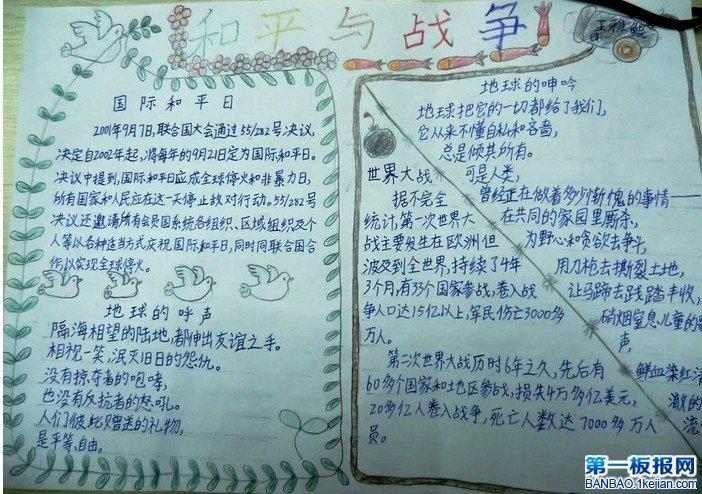 和平与战争
国际和平日
2001年9月7日,联合国大会通过55/282号决议,
决定自2002年起,将每年的9月21日定为国际和平日。
决议中提到,国际和平日应成全球停火和非暴力日,
所有国家和人民应在这一天停止敌对行动。55/282号
决议还邀请所有会员国系统各组织、区域组织及个
人等以各种适当方式庆祝国际和平日,同时同联合国合
作,以实现全球停火。
地球的呼声
隔海相望的陆地,都伸出友谊之手。
相视一笑,泯灭旧日的怨仇。
没有掠夺者的咆哮,
也没有反抗者的怒吼。
人们彼此赠送的礼物,
是平等、自由。
地球的呻吟
地球把它的一切都给了我们,
它从来不懂自私和吝啬,
总是倾其所有。
可是人类,
曾经正在做着多少列惭愧的事情——
在共同的家园里厮杀,
为野心和贪欲去争斗,
用刀枪去撕裂土地,
让马蹄去践踏丰收,
硝烟窒息儿童的
声,
鲜血染红清
激的
流
世界大战
据不完全
统计,第一次世界大
战主要发生在欧洲但
波及到全世界,持续了4年
3个月,有33个国家参战,卷入战
争人口达15亿以上,军民伤亡3000多
万人。
第二次世界大战历时6年之久,先后有
60多个国家和地区参战,损失4万多亿美元,
20多亿人卷入战争,死亡人数达7000多万人
员。
第一板报网
BANBAO.1kejian.com